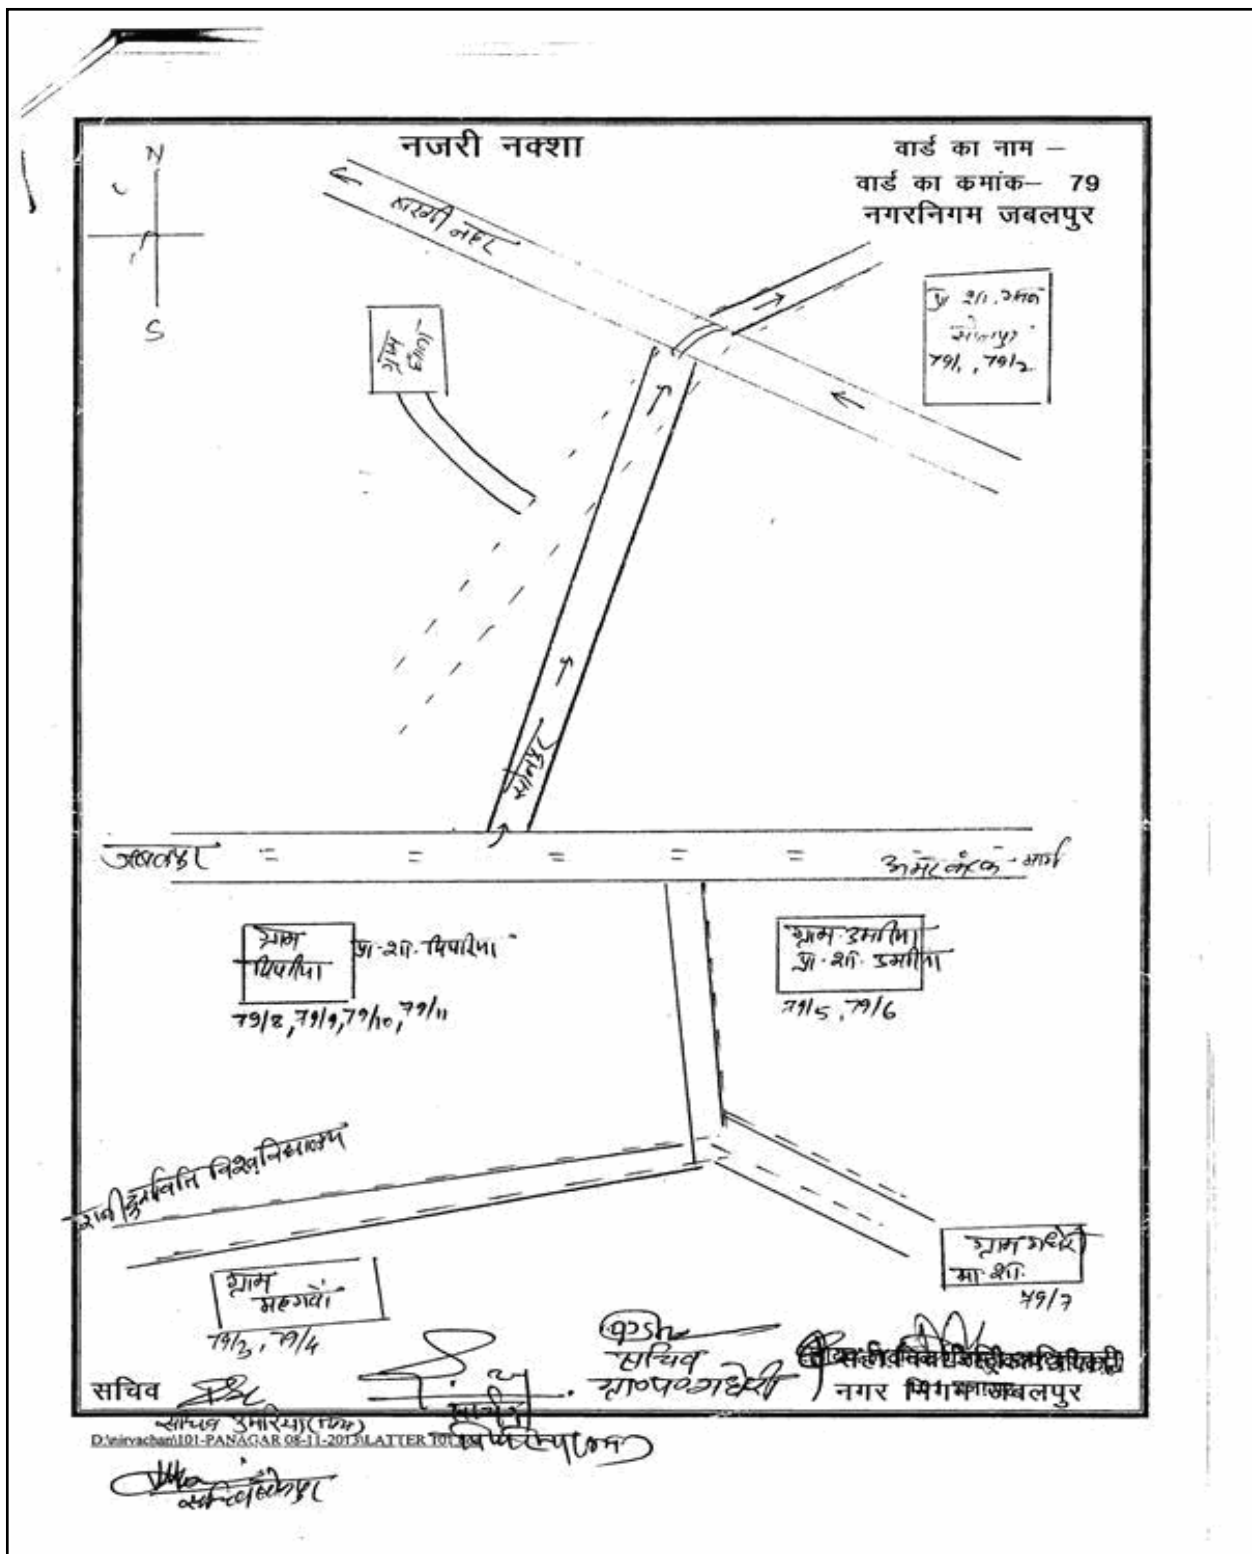 नजरी नक्शा
वार्ड का नाम –
वार्ड का कमांक– 79
नगरनिगम जबलपुर
N
S
बरगी नहर
प्रा शा. भवन
सोनपुर
79/1, 79/2
सोनपुर
जबलपुर
अमरकंटक - मार्ग
ग्राम
पिपरिया
प्रा. शा. पिपरिया
79/8, 79/9, 79/10, 79/11
ग्राम उमरिया
प्रा. शा. उमरिया
79/5, 79/6
रानी दुर्गावति विश्वविद्यालय
ग्राम
महगवां
79/3, 79/4
ग्राम गधेरी
मा. शा.
79/7
सचिव
ग्रा०प०गधेरी
सचिव
नगर निगम जबलपुर
सचिव उमरिया
D:\nirvachan\101-PANAGAR 08-11-2013\LATTER 101
सचिव
पिपरिया
सचिव सोनपुर